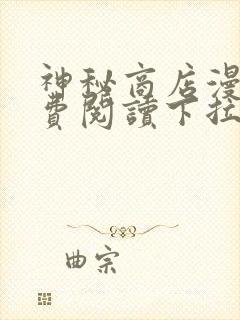 神秘商店漫
費閱讀下拉
曲宗